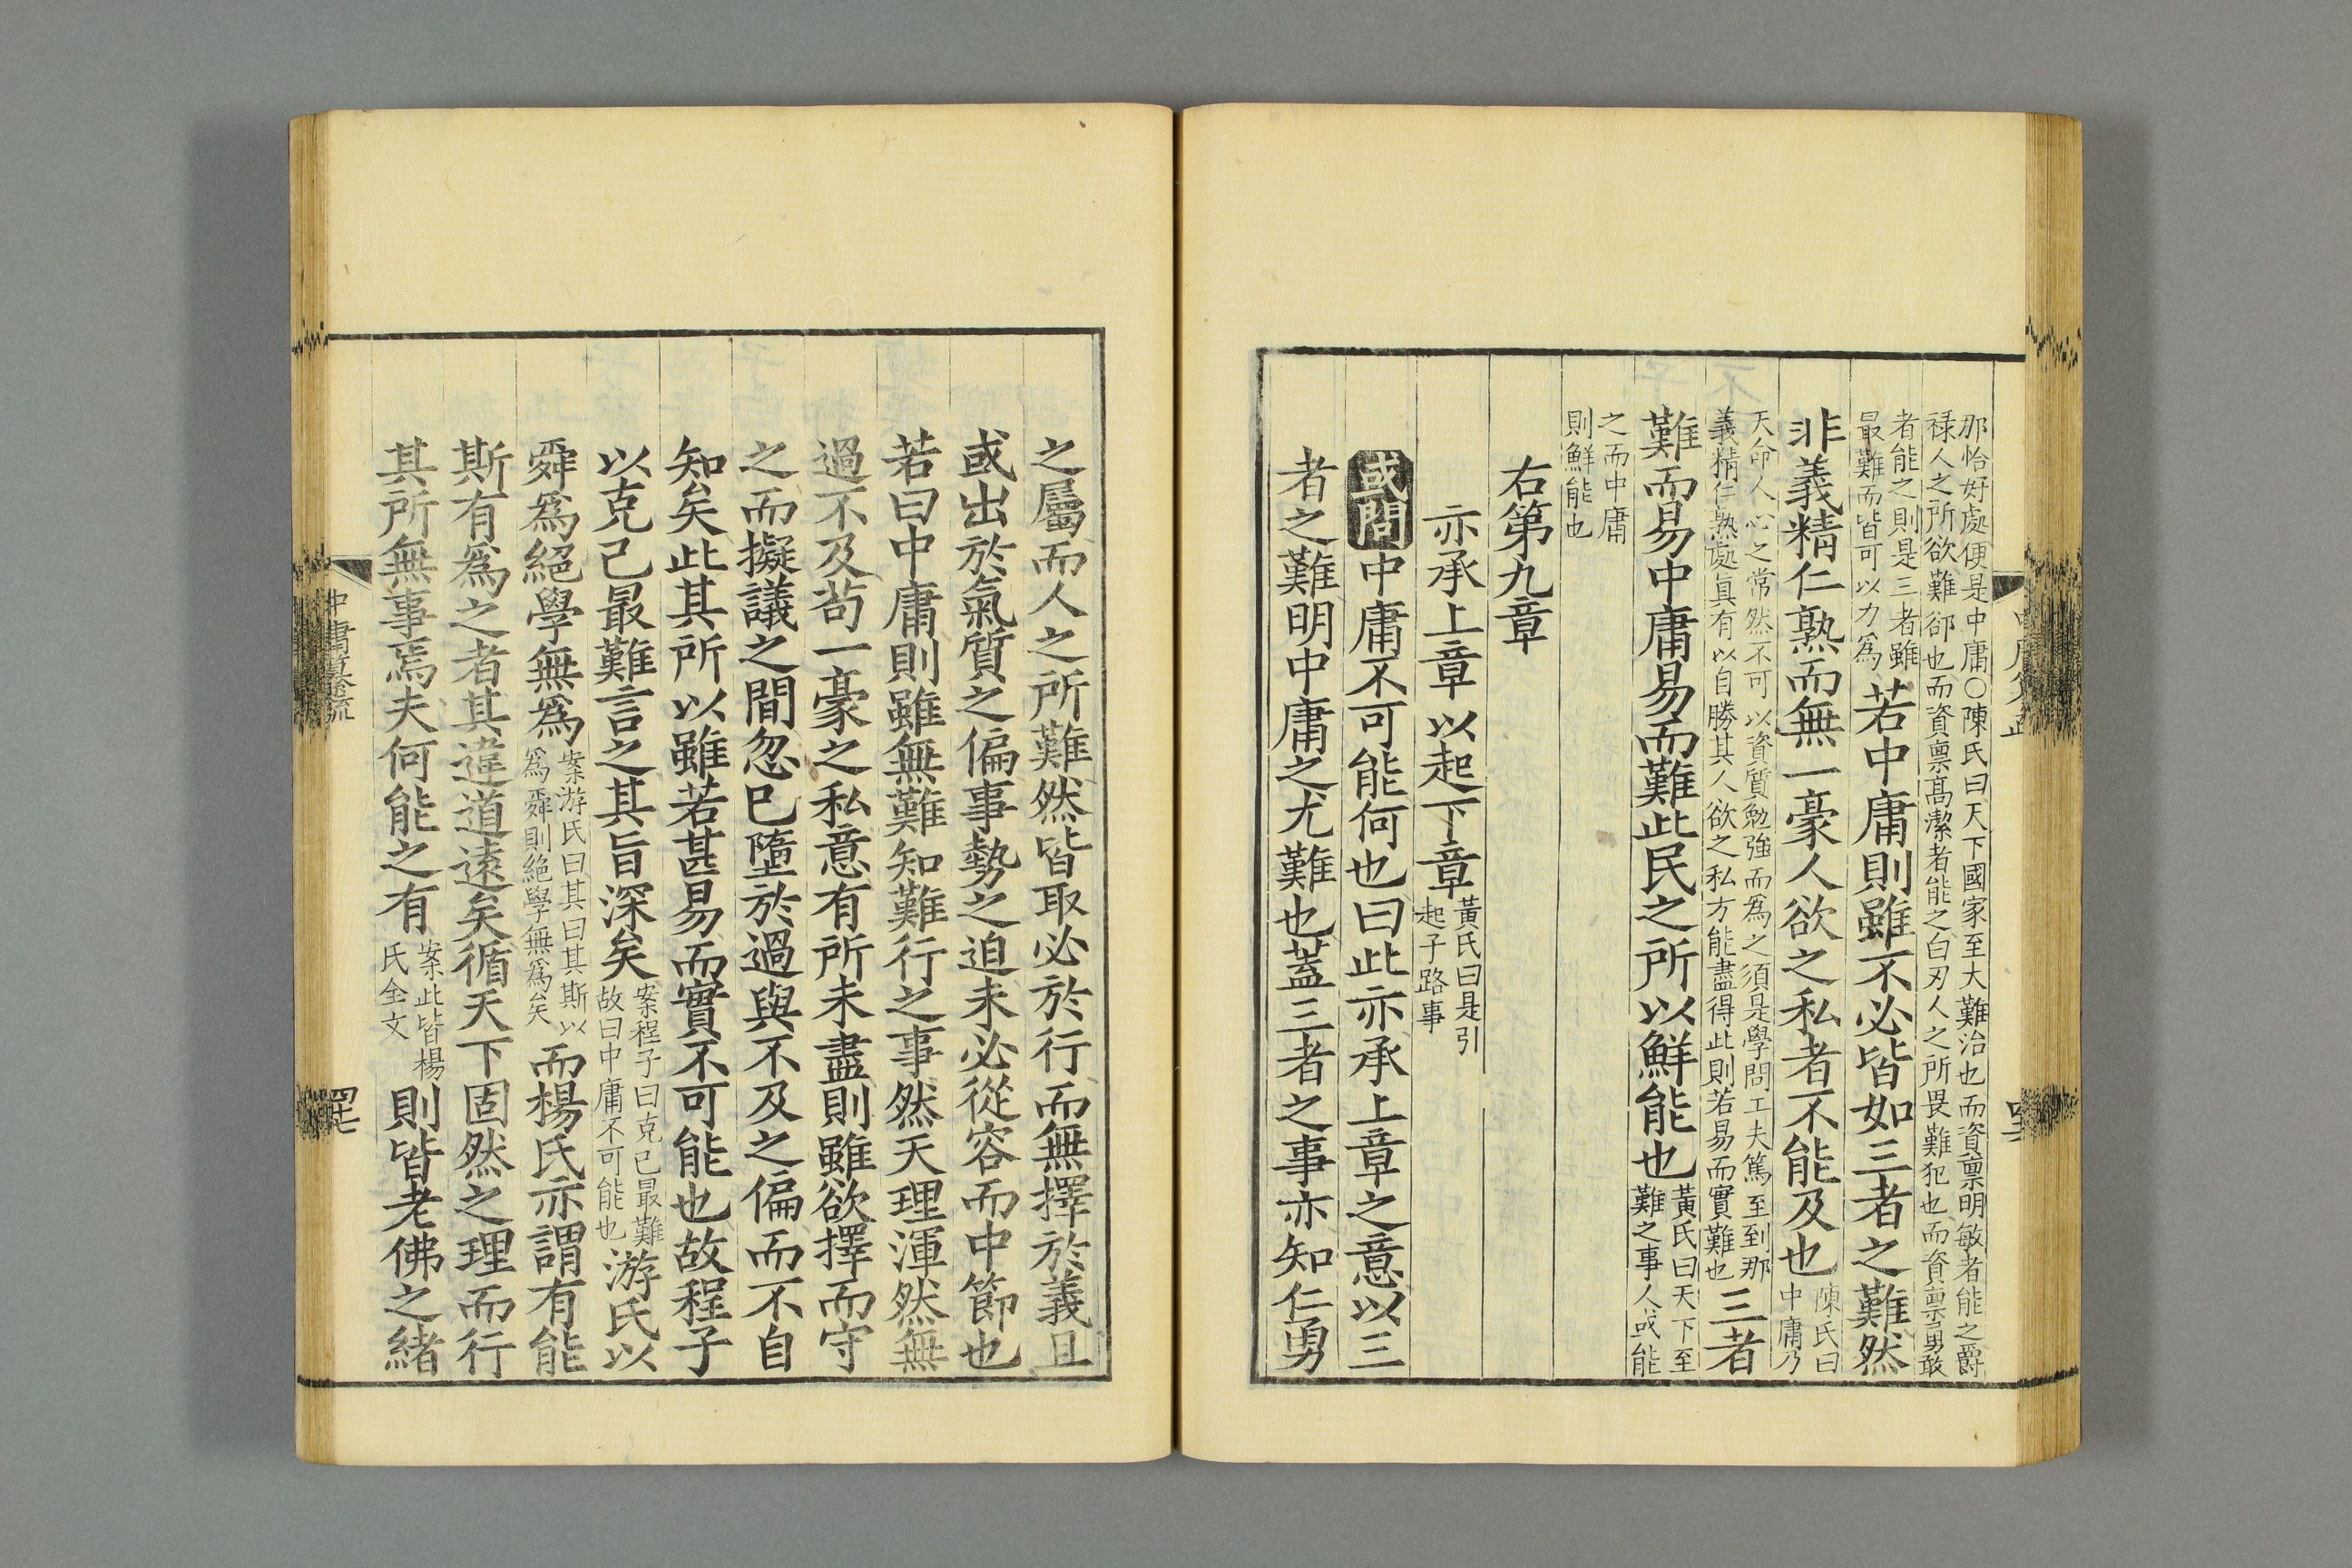 那恰好處便是中庸○陳氏曰天下國家至大難治也而資稟明敏者能之爵
祿人之所欲難郤也而資稟髙潔者能之白刃人之所畏難犯也而資稟勇敢
者能之則是三者雖
最難而皆可以力爲
若中庸則雖不必皆如三者之難然
非義精仁熟而無一豪人欲之私者不能及也
陳氏曰
中庸乃
天命人心之常然不可以資質勉強而爲之須是學問工夫篤至到那
義精仁熟處真有以自勝其人欲之私方能盡得此則若易而實難也
三者
難而易中庸易而難此民之所以鮮能也
黃氏曰天下至
難之事人或能
之而中庸
則鮮能也
右第九章
亦承上章以起下章
黃氏曰是引
起子路事
或問中庸不可能何也曰此亦承上章之意以三
者之難明中庸之尤難也蓋三者之事亦知仁勇
之屬而人之所難然皆取必於行而無擇於義且
或出於氣質之偏事勢之迫未必從容而中節也
若曰中庸則雖無難知難行之事然天理渾然無
過不及苟一豪之私意有所未盡則雖欲擇而守
之而擬議之間忽已墮於過與不及之偏而不自
知矣此其所以雖若甚易而實不可能也故程子
以克己最難言之其旨深矣
案程子曰克己最難
故曰中庸不可能也
游氏以
舜爲絕學無爲
案游氏曰其曰其斯以
爲舜則絕學無爲矣
而楊氏亦謂有能
斯有爲之者其違道遠矣循天下固然之理而行
其所無事焉夫何能之有
案此皆楊
氏全文
則皆老佛之緒
中庸纂疏
四十七